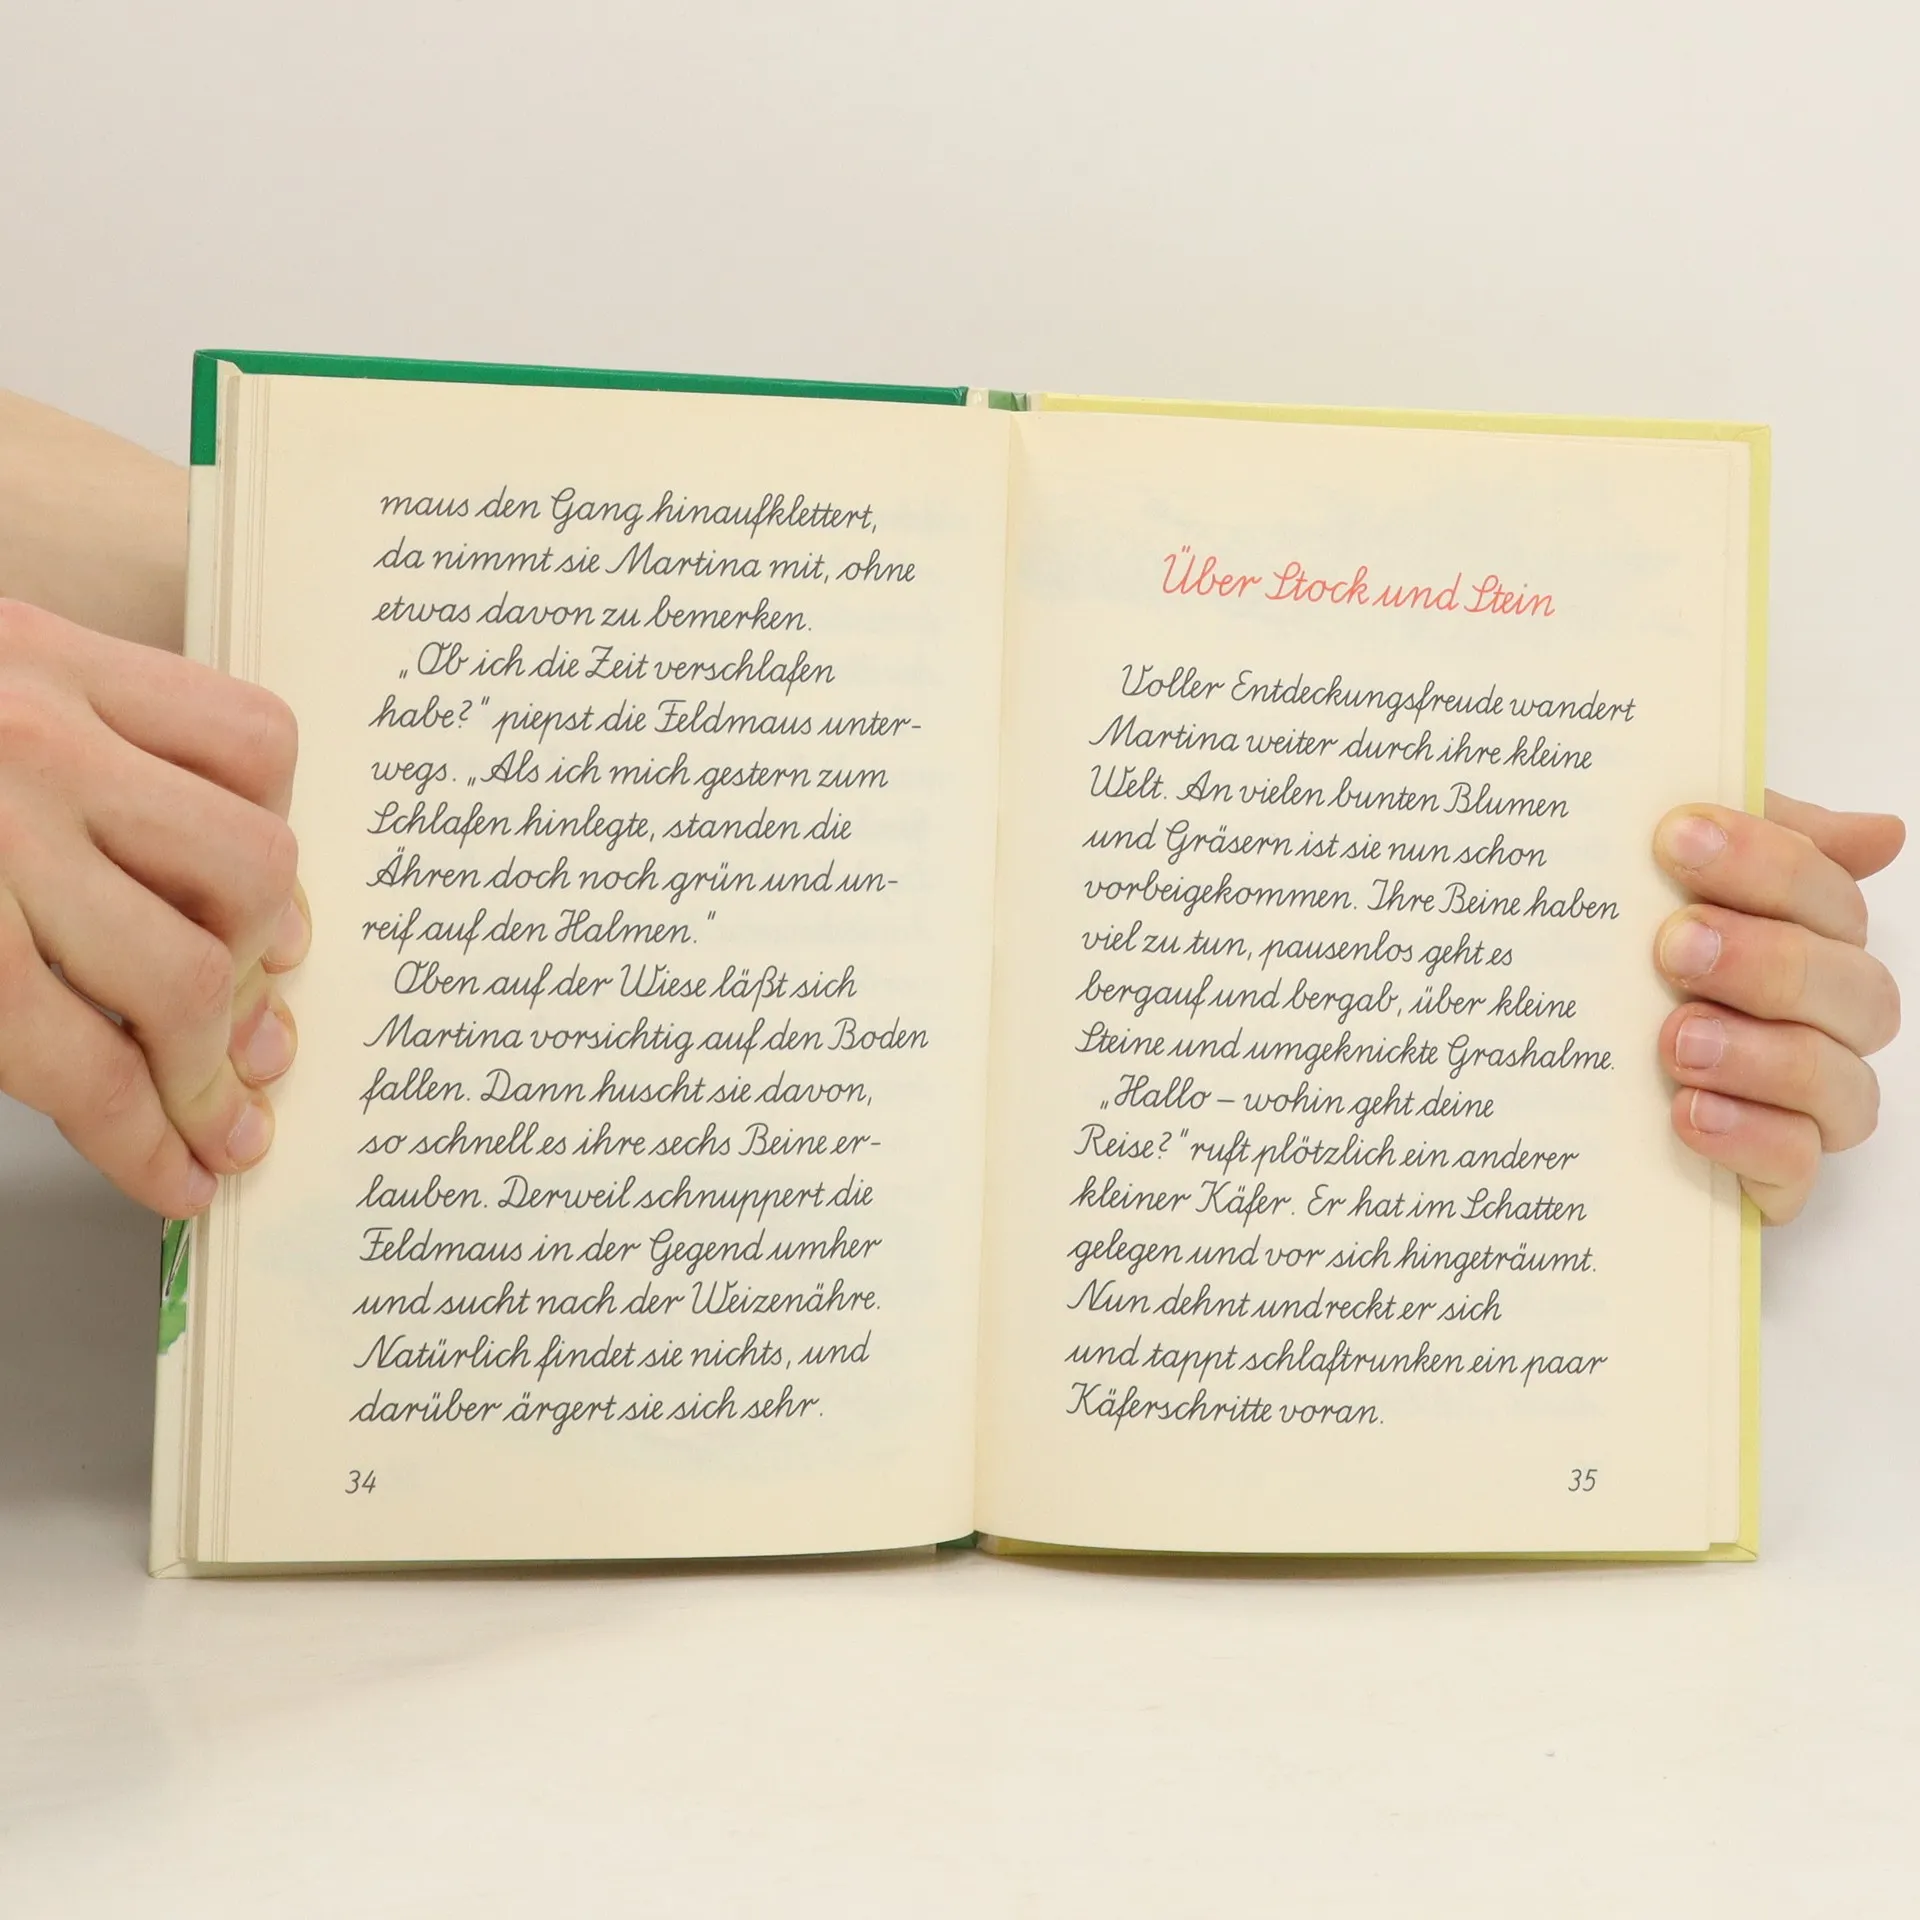 maus den Gang hinaufklettert,
da nimmt sie Martina mit, ohne
etwas davon zu bemerken.
„Ob ich die Zeit verschlafen
habe?" piepst die Feldmaus unter-
wegs. „Als ich mich gestern zum
Schlafen hinlegte, standen die
Ähren doch noch grün und un-
reif auf den Halmen."
Oben auf der Wiese läßt sich
Martina vorsichtig auf den Boden
fallen. Dann huscht sie davon,
so schnell es ihre sechs Beine er-
lauben. Derweil schnuppert die
Feldmaus in der Gegend umher
und sucht nach der Weizenähre.
Natürlich findet sie nichts, und
darüber ärgert sie sich sehr.
34
Über Stock und Stein
Voller Entdeckungsfreude wandert
Martina weiter durch ihre kleine
Welt. An vielen bunten Blumen
und Gräsern ist sie nun schon
vorbeigekommen. Ihre Beine haben
viel zu tun, pausenlos geht es
bergauf und bergab, über kleine
Steine und umgeknickte Grashalme.
„Hallo – wohin geht deine
Reise?" ruft plötzlich ein anderer
kleiner Käfer. Er hat im Schatten
gelegen und vor sich hingeträumt.
Nun dehnt und reckt er sich
und tappt schlaftrunken ein paar
Käferschritte voran.
35